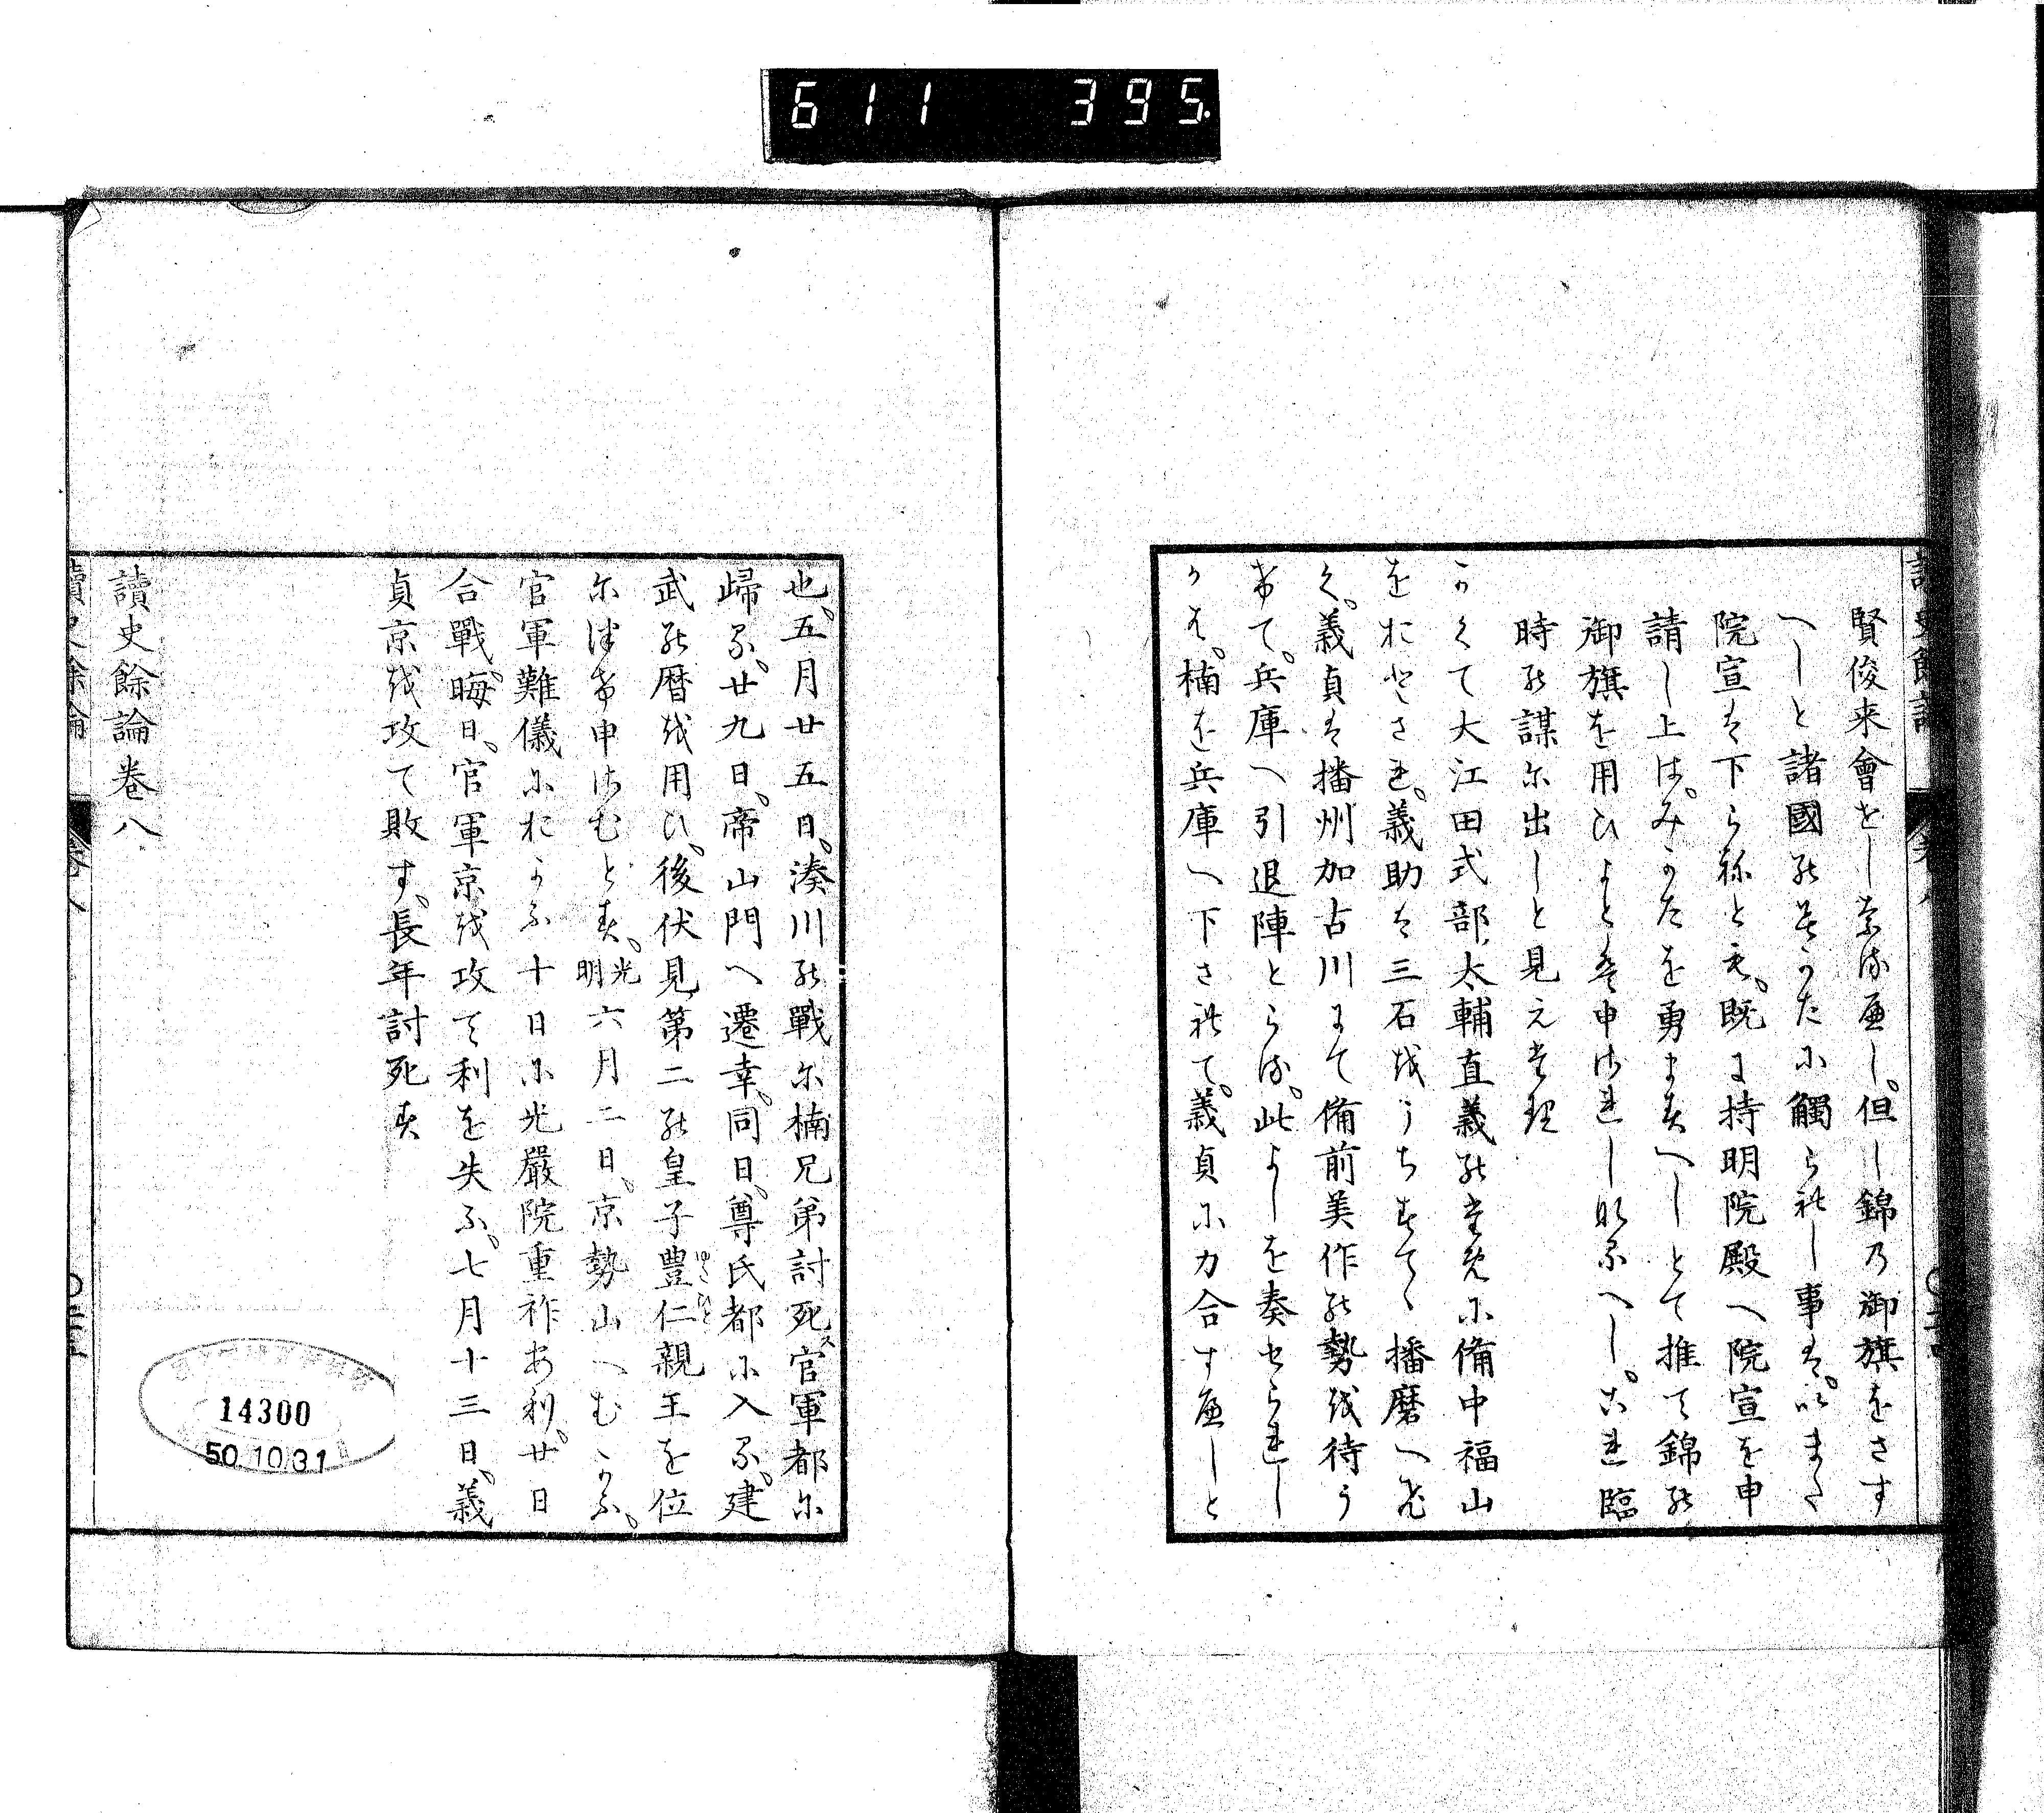 611 395
賢俊来會せしなるべし。但し錦乃御旗をさす
へしと諸國のそのかたに觸られし事は。いまた
院宣は下らねとも。既に持明院殿へ院宣を申
請し上は。みかたを勇ますへしとて推て錦の
御旗を用ひよとは申されしなるへし。これ臨
時の謀に出しと見えたり
かくて大江田式部太輔直義のために備中福山
をおとされ。義助は三石をうちすてゝ播磨へ
く。義貞は播州加古川にて備前美作の勢を待う
けて。兵庫へ引退陣とらる。此よしを奏せられし
かは。楠を兵庫へ下されて。義貞に力合すべしと
也。五月廿五日。湊川の戰に楠兄弟討死ス官軍都に
歸る。廿九日。帝山門へ遷幸。同日。尊氏都に入る。建
武の暦を用ひ。後伏見第二の皇子豊仁親王を位
に津け申さむとす。光明六月二日。京勢山へむかふ。
官軍難儀におよふ十日に光嚴院重祚あり。廿日
合戰。晦日。官軍京を攻て利を失ふ。七月十三日。義
貞京を攻て敗す。長年討死す
讀史餘論巻八
14300
50.10.31